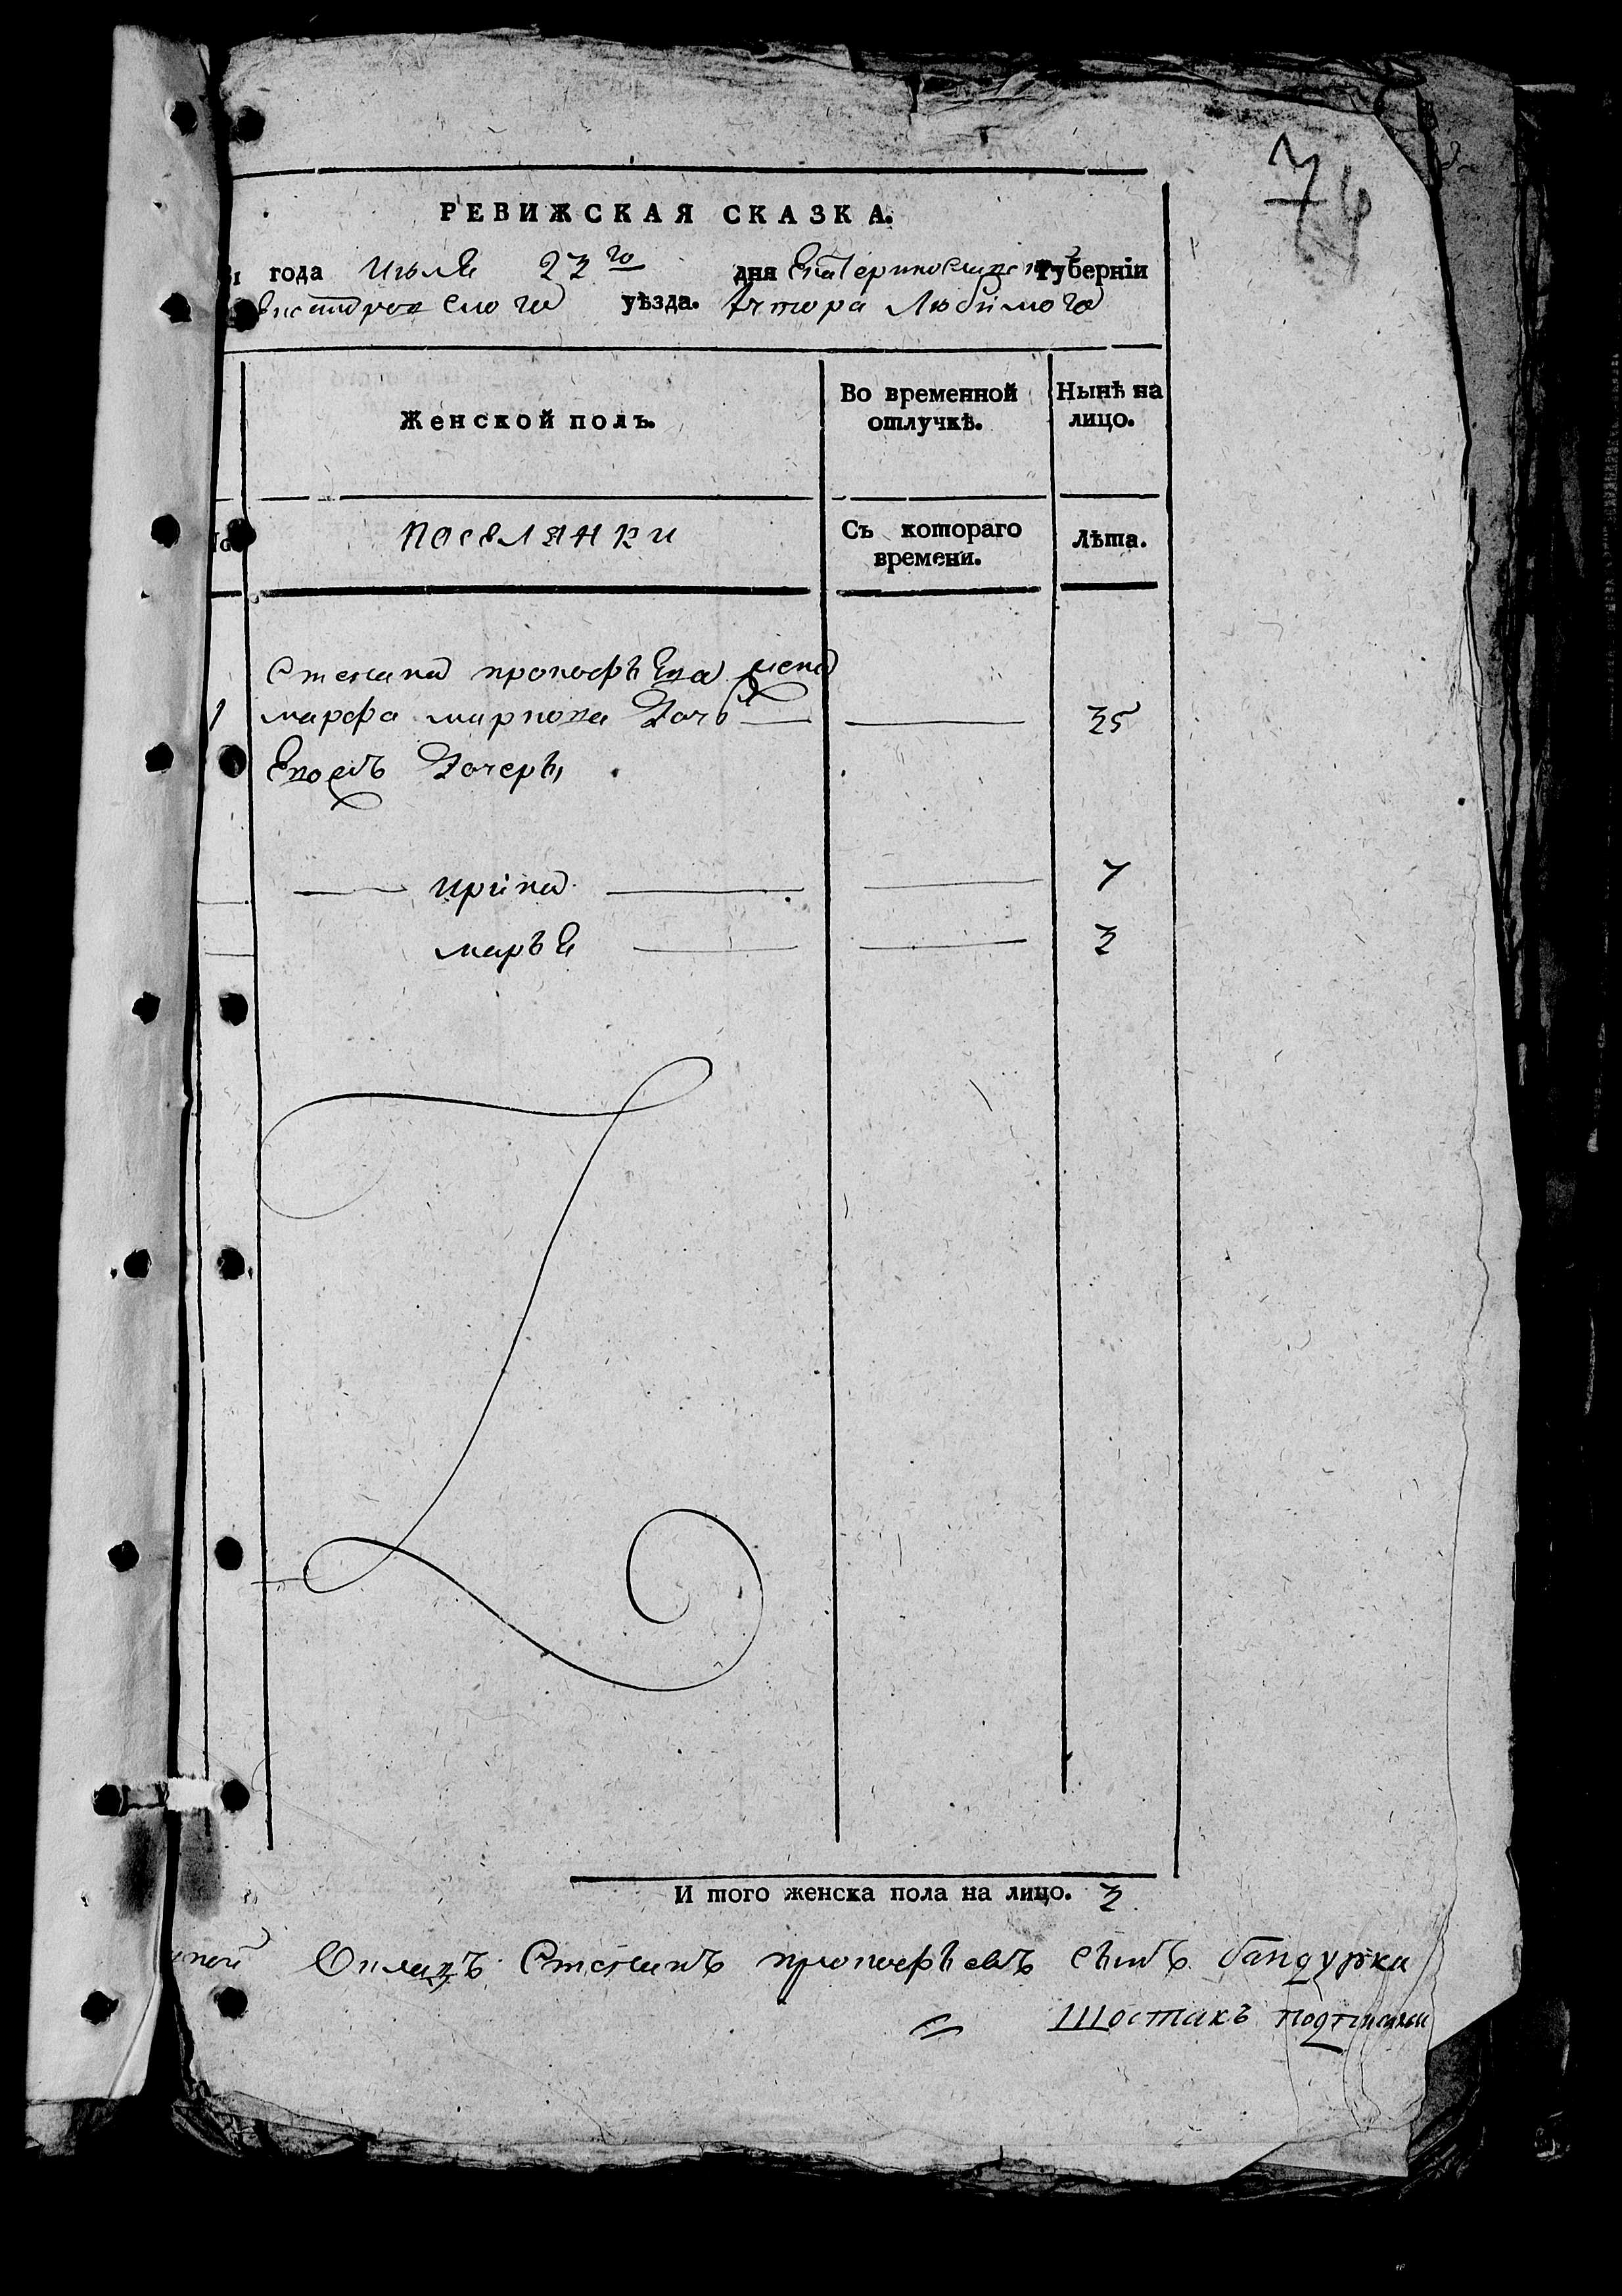 7
РЕВИЖСКАЯ СКАЗКА.
года Июля 23го дня Екатеринославской Губерніи
уѣзда. Любимога
Женской полъ.
Во временной отлучкѣ.
Нынѣ на лицо.
поселянки
Съ котораго времени.
Лѣта.
Степана прокофьева жена
1 марфа маркова дочь 35
Ихъ дочери,
ирина 7
марья 3
И того женска пола на лицо. 3
Степанъ прокофьевъ сынъ бандурка
Шостакъ подписалъ